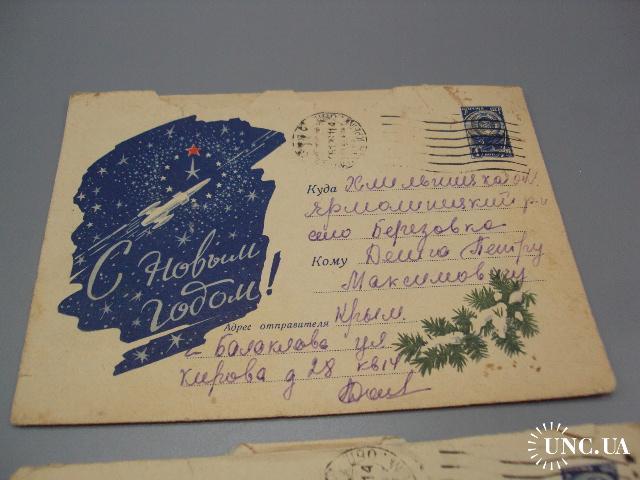 С Новым
годом!
Куда Хмельницкая обл
Ярмолинецкий р-н
село Березовка
Кому Демга Петру
Максимовичу
Адрес отправителя Крым
г Балаклава ул
Кирова д 28 кв 14
UNC.UA